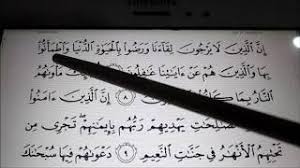 إِنَّ الَّذِينَ لَا يَرْجُونَ لِقَاءَنَا وَرَضُوا بِالْحَيَوٰةِ الدُّنْيَا وَاطْمَأَنُّوا
بِهَا وَالَّذِينَ هُمْ عَنْ ءَايَٰتِنَا غَٰفِلُونَ ٧ مَأْوَىٰهُمُ
النَّارُ بِمَا كَانُوا ٨ إِنَّ الَّذِينَ ءَامَنُوا
الصَّٰلِحَٰتِ يَهْدِيهِمْ رَبُّهُم بِإِيمَٰنِهِمْ تَجْرِي مِن
تَحْتِهِمُ الْأَنْهَٰرُ فِي جَنَّٰتِ النَّعِيمِ ٩ دَعْوَىٰهُمْ فِيهَا سُبْحَٰنَكَ